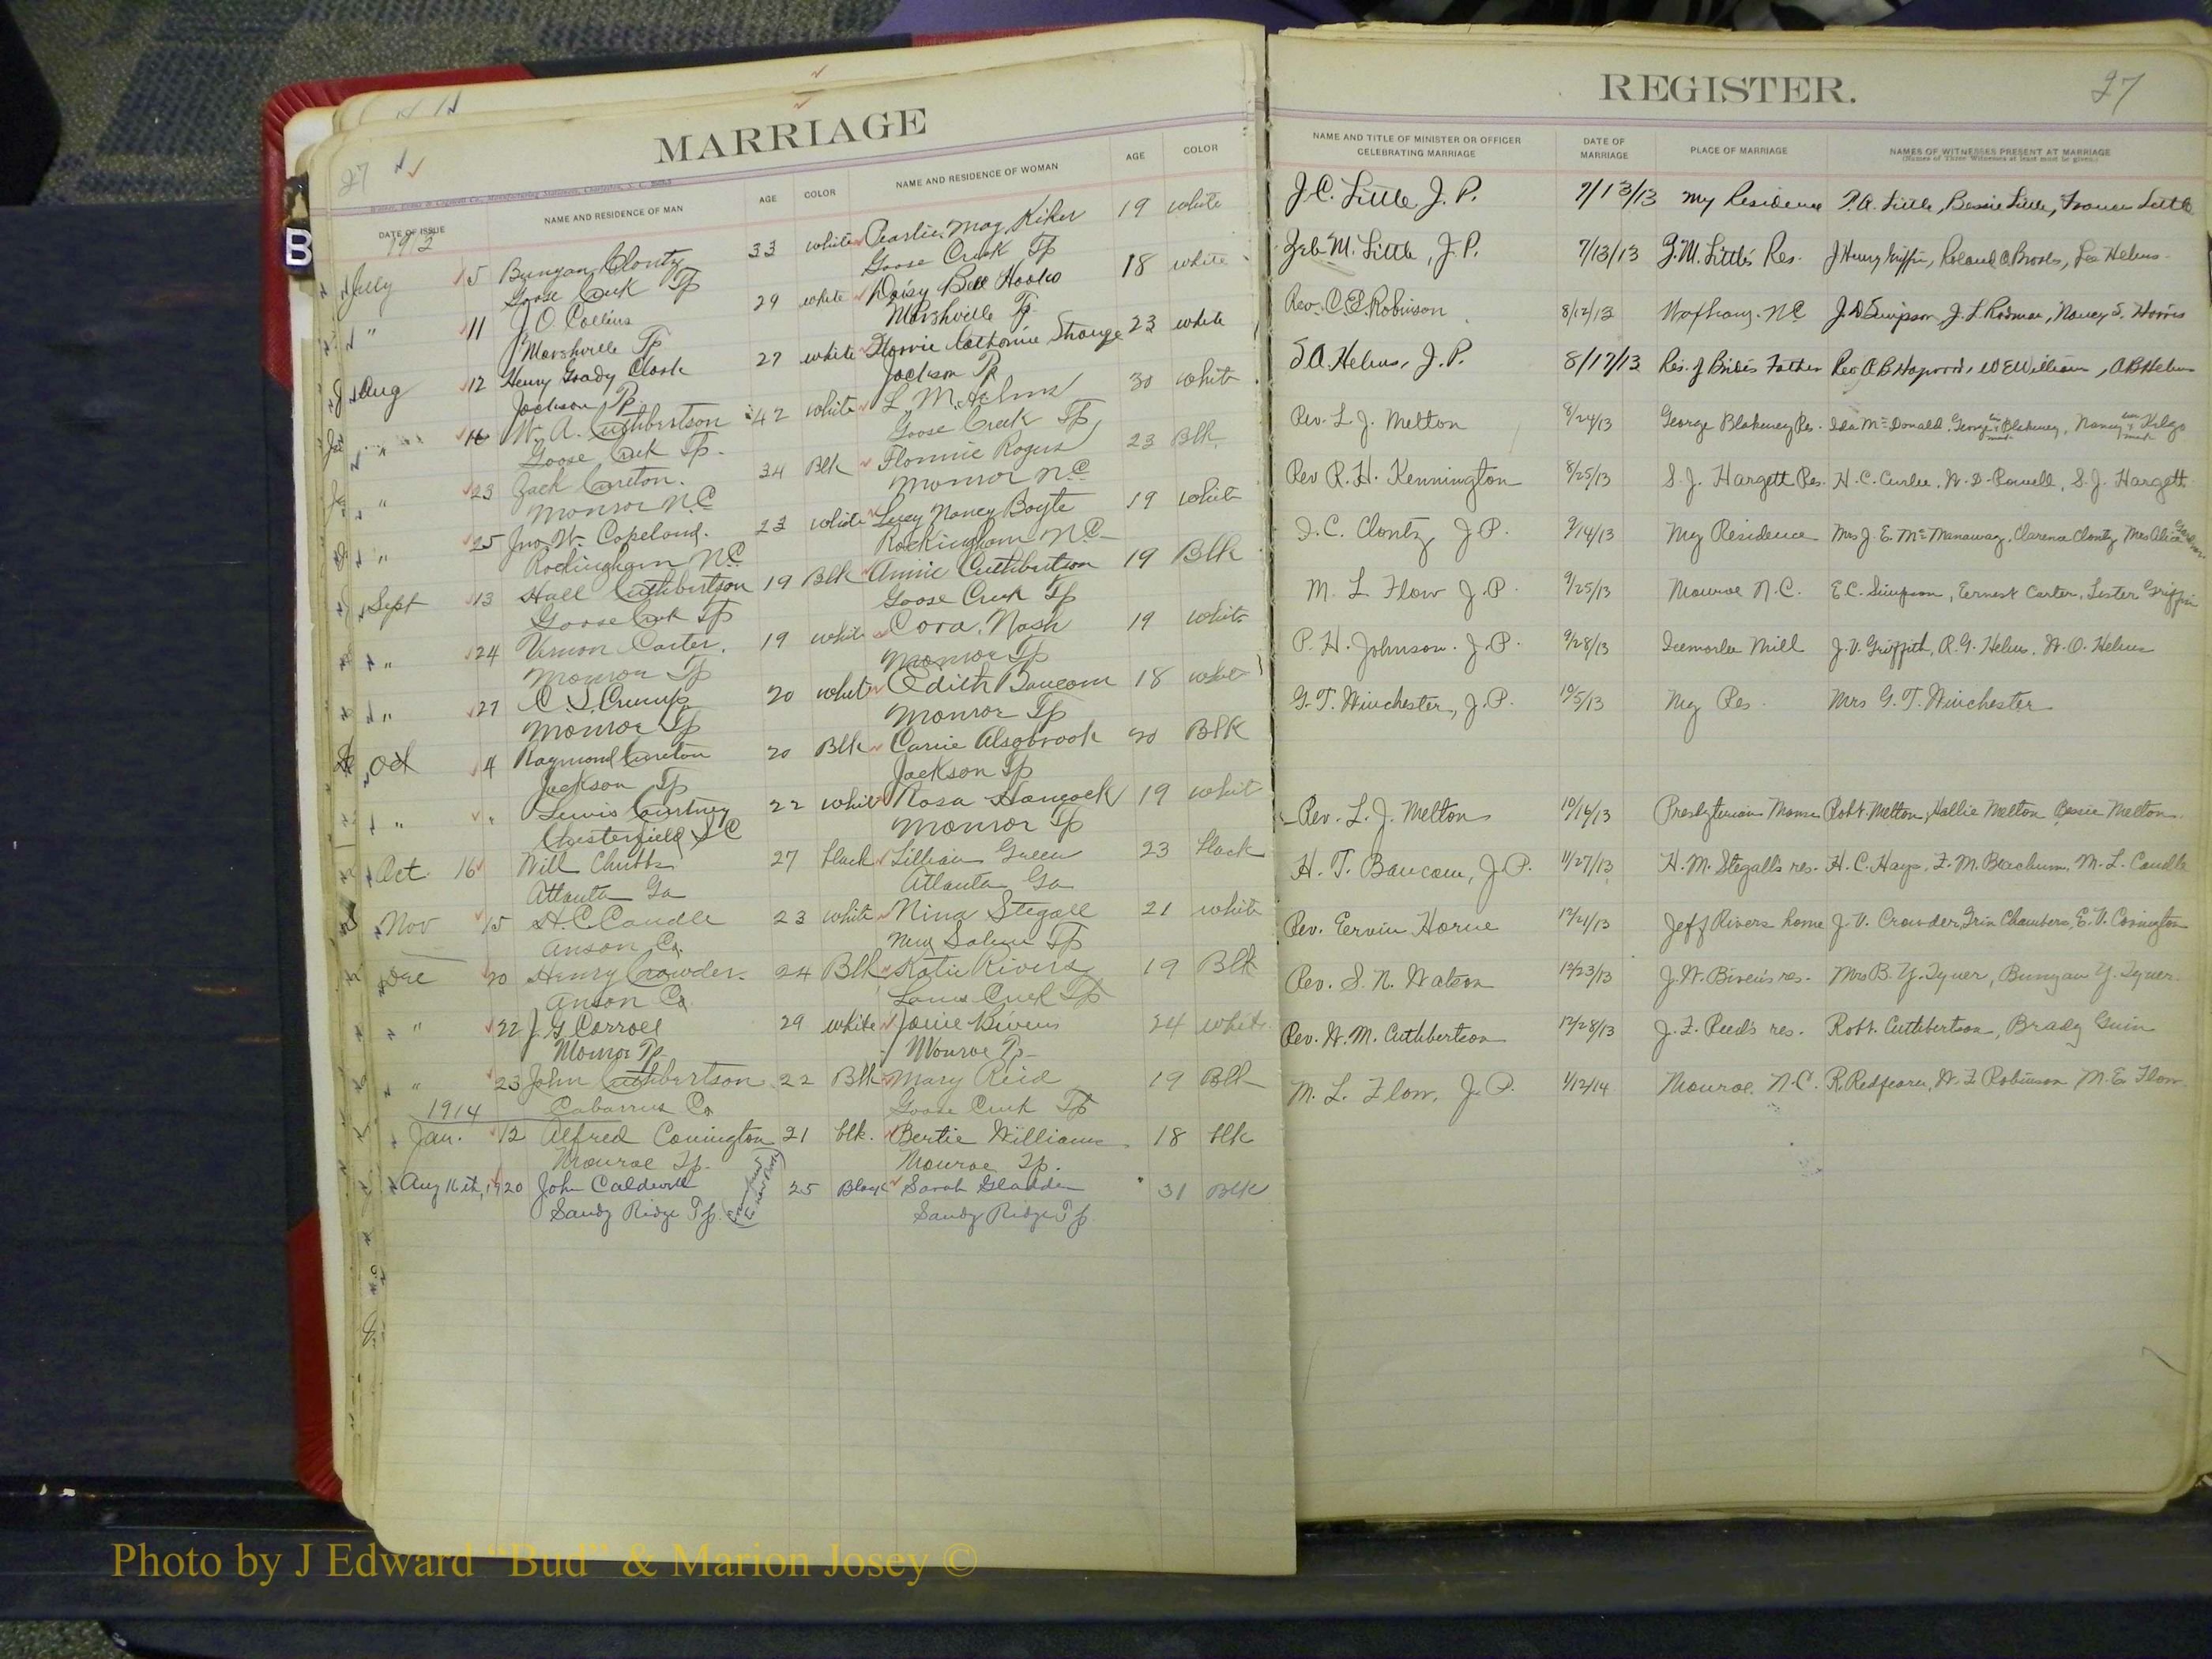 MARRIAGE
27
DATE OF ISSUE
NAME AND RESIDENCE OF MAN
AGE
COLOR
NAME AND RESIDENCE OF WOMAN
AGE
COLOR
July 5 Bunyan Clontz 33 white Pearlie May Kiker 19 white
Goose Creek Tp Goose Creek Tp
" 11 J. O. Collins 29 white Daisy Bell Hooks 18 white
Marshville Tp Marshville Tp
Aug 12 Henry Grady Clark 27 white Catherine 23 white
Jackson Tp Jackson Tp
" 16 W. A. Cuthbertson 42 white L. M. Helms 30 white
Goose Creek Tp. Goose Creek Tp
" 23 Zach Cureton. 34 Blk Flonnie 23 Blk
Monroe N.C Monroe N.C
" 25 Jno. W. Copeland. 23 white Lucy Nancy Boyte 19 white
Rockingham N.C Rockingham N.C
Sept 13 Hall Cuthbertson 19 Blk Annie Cuthbertson 19 Blk
Goose Creek Tp Goose Creek Tp
" 24 Vernon Carter. 19 white Cora Nash 19 white
Monroe Tp Monroe Tp
" 27 C. S. Crump 20 white Edith Baucom 18 white
Monroe Tp Monroe Tp
Oct 4 Raymond Cureton 20 Blk Carrie Alsobrook 20 Blk
Jackson Tp Jackson Tp
" " Lewis Courtney 22 white Rosa Hancock 19 whit
Chesterfield S C Monroe Tp
Oct. 16 Will Chubbs 27 black Lillian Green 23 black
Atlanta Ga Atlanta Ga
Nov 15 H. C. Caudle 23 white Nina Stegall 21 white
Anson Co. New Salem Tp
Dec 20 Henry Crowder. 24 Blk Katie Rivers 19 Blk
Anson Co Lanes Creek Tp
" 22 J. G Carroll 29 white Josie Bivens 24 white
Monroe Tp Monroe Tp
" 23 John Cuthbertson 22 Blk Mary Reid 19 Blk
1914 Cabarrus Co Goose Creek Tp
Jan. 12 Alfred Covington 21 blk. Bertie Williams 18 blk
Monroe Tp. Monroe Tp.
Aug 16th, 1920 John Caldwell 25 Black Sarah Gladden 31 Blk
Sandy Ridge Tp. Sandy Ridge Tp
REGISTER.
27
NAME AND TITLE OF MINISTER OR OFFICER CELEBRATING MARRIAGE
DATE OF MARRIAGE
PLACE OF MARRIAGE
NAMES OF WITNESSES PRESENT AT MARRIAGE
(Names of Three Witnesses at least must be given.)
J. C. Little J. P. 7/13/13 My Residence Bessie Little, Little
Zeb. M. Little, J. P. 7/13/13 Z. M. Little's Res. J Henry Griffin, Roland Brooks, Lee Helms
Rev. C. E. Robinson 8/12/13 Waxhaw, N.C. J. D Simpson, Nancy S. Harris
S. A. Helms, J. P. 8/17/13 Res. of Brides Father Rev A B Haywood, W E William, A B Helms
Rev. L. J. Melton 8/24/13 George Blakeney Res. Ida McDonald, George Blakeney, Nancy
Rev R. H. Kennington 8/25/13 S. J. Hargett Res. H. C. Curlee, W. D. Powell, S. J. Hargett
I. C. Clontz, J. P. 9/14/13 My Residence Mrs J. E. McManaway, Clarence Clontz, Mrs Alice
M. L Flow J. P. 9/25/13 Monroe N.C. E. C. Simpson, Ernest Carter, Lester Griffin
P. H. Johnson. J. P. 9/28/13 Icemorlee Mill J. V. Griffith, R. G. Helms, W. O. Helms
G. T. Winchester, J. P. 10/5/13 My Res. Mrs G. T. Winchester
Rev. L. J. Melton 10/16/13 Presbyterian Manse Robt. Melton, Hallie Melton Bessie Melton
H. T. Baucom, J. P. 11/27/13 H. M. Stegall's res. H. C. Hays, F. M. Beachum, M. L. Caudle
Rev. Ervin Horne 12/21/13 Jeff Rivers home J. V. Crowder, Chambers, E. V. Covington
Rev. S. N. Watson 12/23/13 J. W. Biven's res. Mrs B. Y. Tyner, Bunyan Y. Tyner.
Rev. W. M. Cuthbertson 12/28/13 J. F. Reed's res. Robt. Cuthbertson, Brady Guin
M. L. Flow, J. P. 1/12/14 Monroe. N.C. R. Redfearn, W. F. Robinson M. E. Flow
B
Photo by J Edward “Bud” & Marion Josey ©